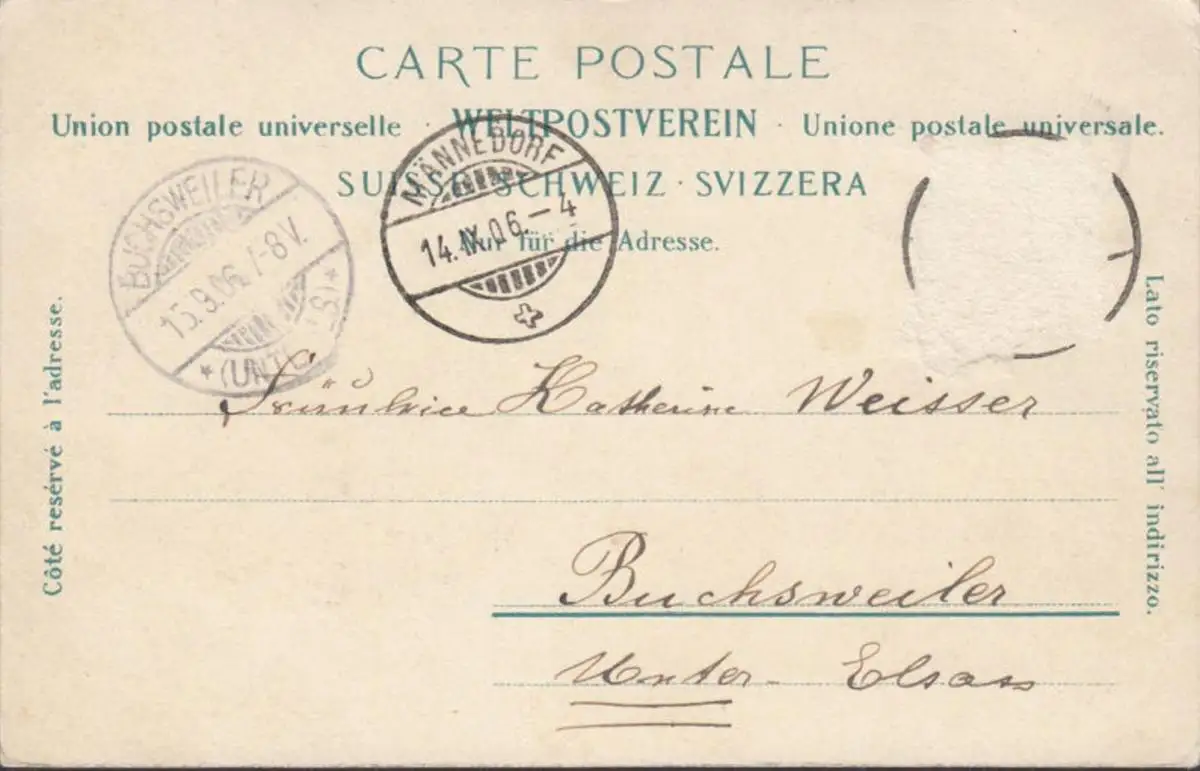 CARTE POSTALE
Union postale universelle · WELTPOSTVEREIN · Unione postale universale.
SUISSE · SCHWEIZ · SVIZZERA
Nur für die Adresse.
BUCHSWEILER
15.9.06. 7-8V.
* (UNT. ELS.) *
MÄNNEDORF
14.IX.06.–4
Côté resérvé à l'adresse.
Lato riservato all' indirizzo.
Katherine Weisser
Buchsweiler
Unter-Elsass